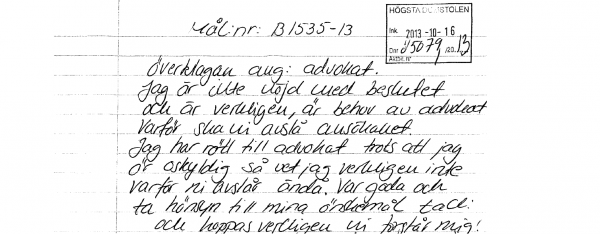 HÖGSTA DOMSTOLEN
Mål:nr: B1535-13
Ink. 2013-10-16
Dnr Ö5079/2013
Aktbil.nr
överklagan ang: advokat.
Jag är inte nöjd med beslutet
och är verkligen, är behov av advokat
varför ska ni avslå ansökanet.
Jag har rätt till advokat trots att jag
är oskyldig så vet jag verkligen inte
varför ni avslår ändå. Var goda och
ta hänsyn till mina önskemål tack:
och hoppas verkligen ni förstår mig!